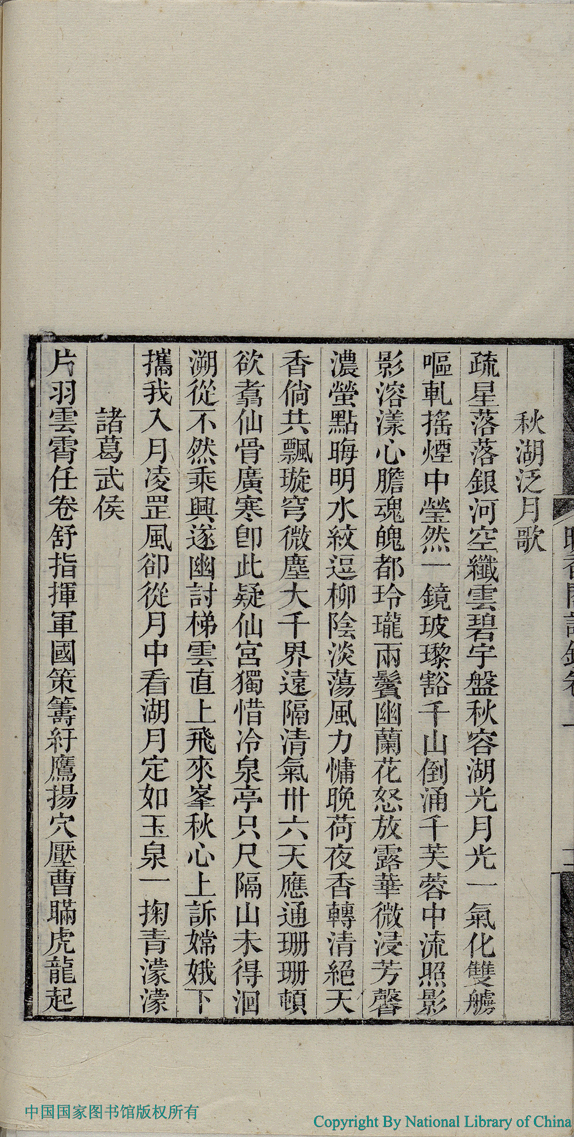 秋湖泛月歌
疏星落落銀河空纖雲碧宇盤秋容湖光月光一氣化雙艣
嘔軋搖煙中瑩然一鏡玻瓈豁千山倒涌千芙蓉中流照影
影溶漾心膽魂魄都玲瓏兩鬢幽蘭花怒放露華微浸芳馨
濃螢點晦明水紋逗柳陰淡蕩風力慵晚荷夜香轉清絕天
香倘共飄璇穹微塵大千界遠隔清氣卅六天應通珊珊頓
欲翥仙骨廣寒卽此疑仙宮獨惜冷泉亭只尺隔山未得洄
溯從不然乘興遂幽討梯雲直上飛來峯秋心上訴嫦娥下
攜我入月凌罡風卻從月中看湖月定如玉泉一掬青濛濛
諸葛武侯
片羽雲霄任卷舒指揮軍國策籌紆鷹揚穴壓曹瞞虎龍起
中国国家图书馆版权所有
Copyright By National Library of China